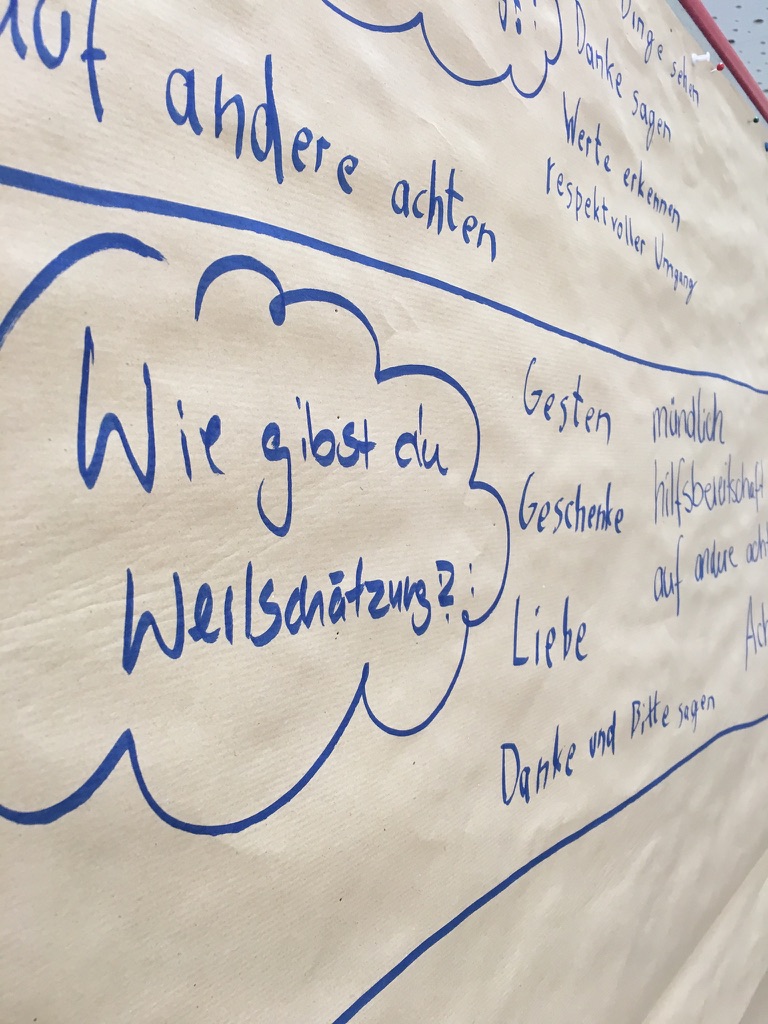 auf
andere achten
Dinge sehen
Danke sagen
Werte erkennen
respektvoller Umgang
Wie gibst du
Wertschätzung?:
Gesten
Geschenke
Liebe
Danke und Bitte sagen
mündlich
hilfsbereitschaft
auf andere acht
Ach